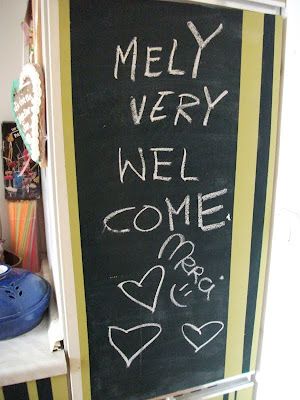 MELY
VERY
WEL
COME
Mrrrá